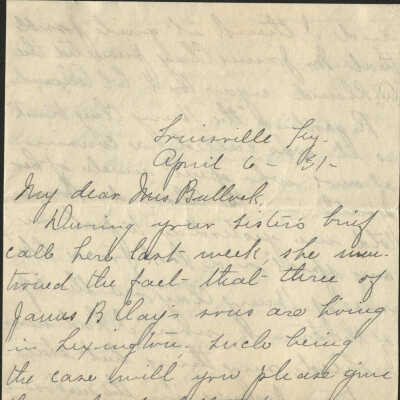 Louisville Ky.
April 6 - 31 -
My dear Mrs. Bullock,
During your sister's brief
call here last week, she men-
tioned the fact that three of
James B Clay's sons are living
in Lexington. Such being
the case will you please give